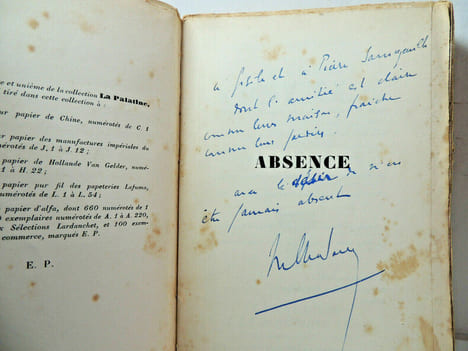 e et unième de la collection La Palatine,
tiré dans cette collection à :
ur papier de Chine, numérotés de C. 1
r papier des manufactures impériales du
umérotés de J. 1 à J. 12 ;
papier de Hollande Van Gelder, numé-
1 à H. 22 ;
papier pur fil des papeteries Lafuma,
umérotés de L. 1 à L. 54 ;
papier d'alfa, dont 660 numérotés de 1
0 exemplaires numérotés de A. 1 à A 220,
x Sélections Lardanchet, et 100 exem-
commerce, marqués E. P.
E. P.
à et à Pierre
dont l'amitié est claire
comme leur maison, fraîche
comme leur jardin,
ABSENCE
avec le désir de n'en
être jamais absent